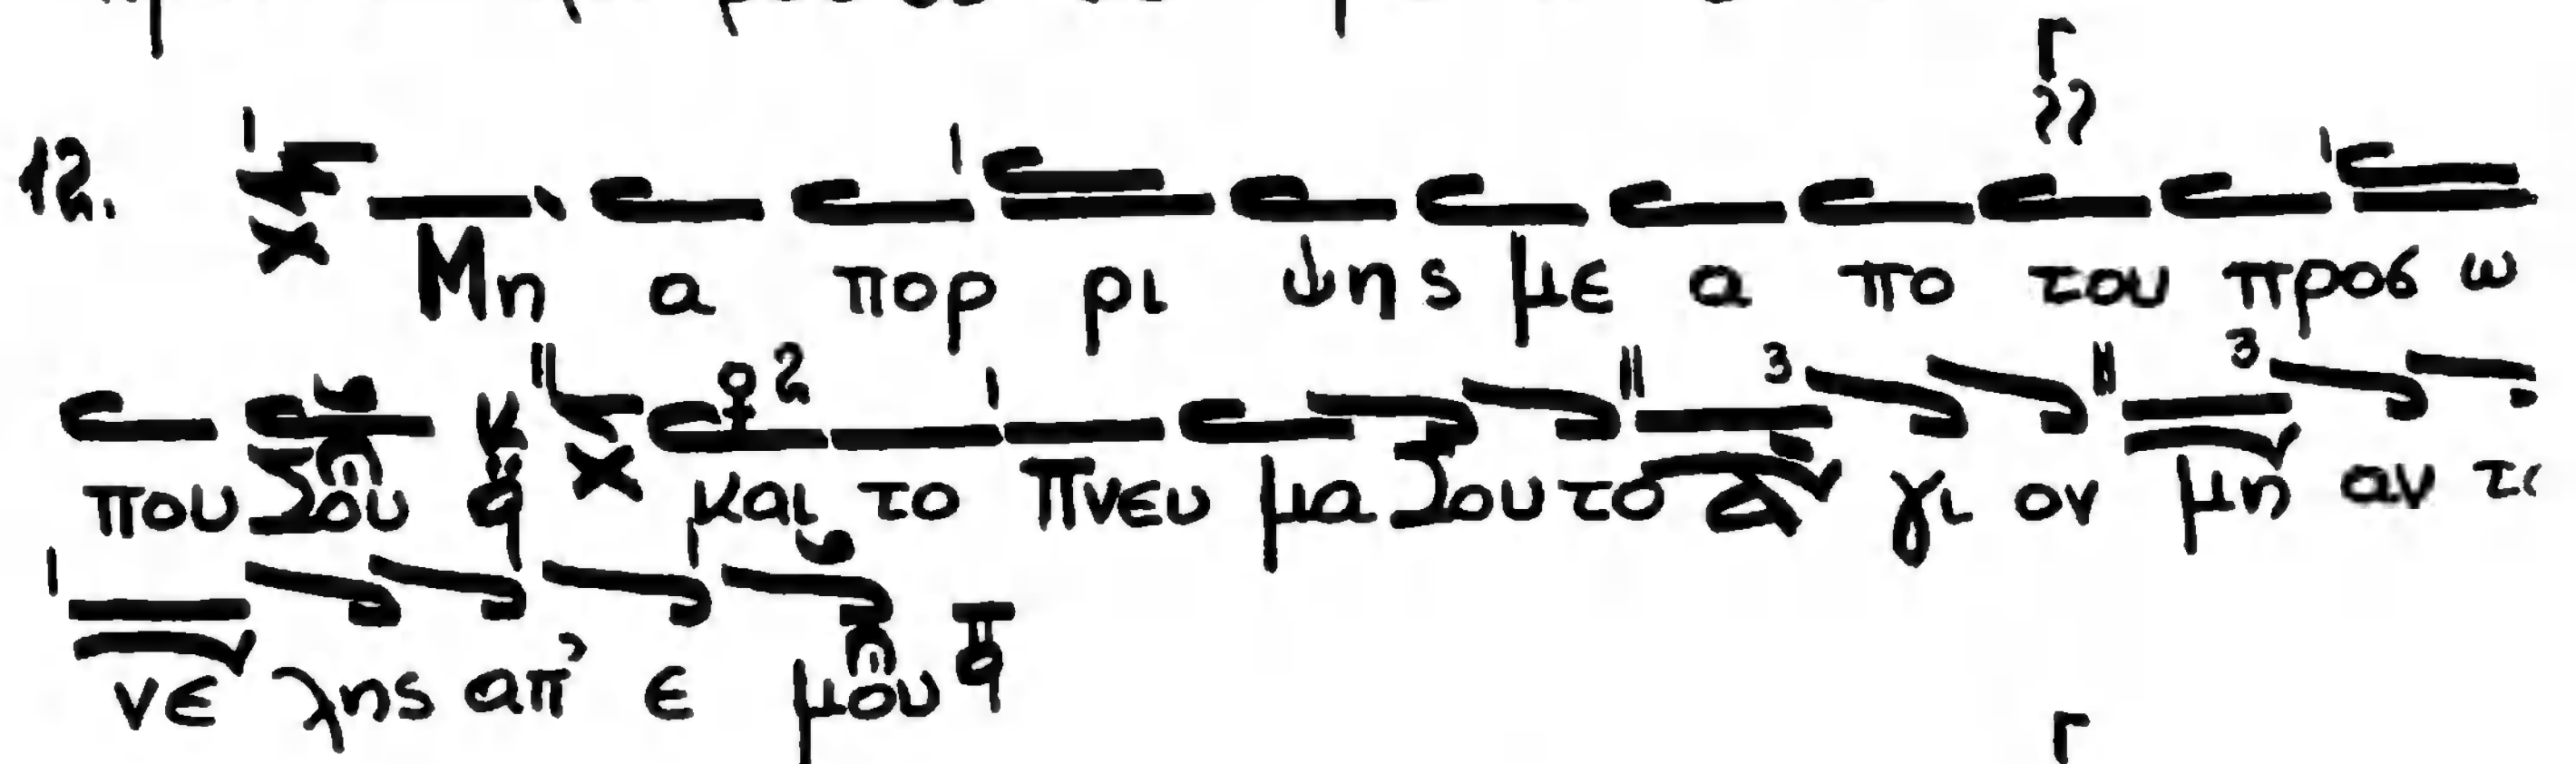 12. Μη α πορ ρι ψης με α πο του προσ ω
που Σου και το Πνευ μα Σου το Α γι ον μη αν τα
νε λης απ' ε μου